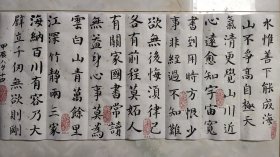 水惟善下能成海
山不爭高自極天
氣清更覺山川近
心遠愈知宇宙寬
書到用時方恨少
事非經過不知難
欲無後悔須律己
各有前程莫妬人
有關家國書常讀
無益身心事莫為
雲白山青萬餘里
江深竹靜兩三家
海納百川有容乃大
壁立千仞無欲則剛